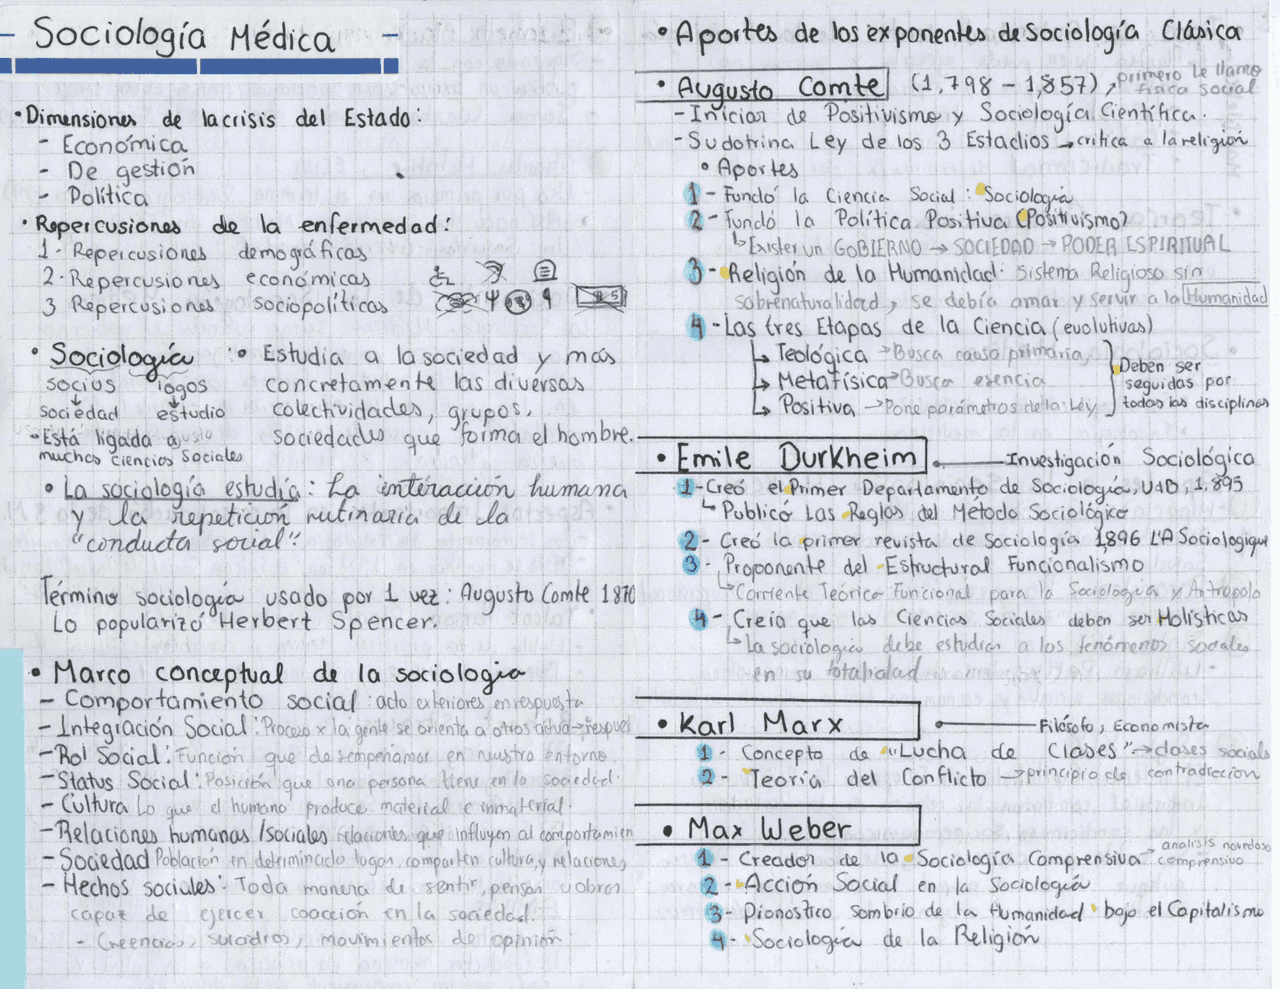 Sociología Médica
• Dimensiones de la crisis del Estado:
- Económica
- De gestión
- Política
• Repercusiones de la enfermedad:
1- Repercusiones demográficas
2- Repercusiones económicas
3 Repercusiones sociopolíticas
• Sociología :
socius logos
sociedad estudio
- Está ligada a
muchas ciencias sociales
• Estudia a la sociedad y más
concretamente las diversas
colectividades, grupos,
sociedades que forma el hombre.
• La sociología estudia: La interacción humana
y la repetición rutinaria de la
"conducta social".
Término sociología usado por 1 vez: Augusto Comte 1870
Lo popularizó Herbert Spencer.
• Marco conceptual de la sociología
- Comportamiento social: acto exteriores en respuesta
- Integración Social: Proceso x la gente se orienta a otros actua→respues
- Rol Social: Función que desempeñamos en nuestro entorno.
- Status Social: Posición que una persona tiene en la sociedad.
- Cultura Lo que el humano produce material e inmaterial.
- Relaciones humanas/sociales relaciones que influyen al comportamien
- Sociedad Población en determinado lugar, comparten cultura, y relaciones,
- Hechos sociales: Toda manera de sentir, pensar u obrar
capaz de ejercer coacción en la sociedad.
- Creencias, suicidios, movimientos de opinión.
• Aportes de los exponentes de Sociología Clásica
• Augusto Comte (1,798 - 1,857), primero le llamo
física social
- Iniciar de Positivismo y Sociología Científica.
- Su dotrina Ley de los 3 Estadios → critica a la religión
• Aportes
1 - Fundó la Ciencia Social: Sociología
2 - Fundó la Política Positiva (Positivismo)
Existen un GOBIERNO → SOCIEDAD → PODER ESPIRITUAL
3 - Religión de la Humanidad: Sistema Religioso sin
sobrenaturalidad, se debía amar y servir a la Humanidad
4 - Las tres Etapas de la Ciencia (evolutivas)
Teológica → Busca causa primaria
Metafísica → Busca esencia
Positiva → Pone parámetros de la Ley
Deben ser
seguidas por
todas las disciplinas
• Emile Durkheim Investigación Sociológica
1 - Creó el Primer Departamento de Sociología, 1,895
Publicó Las Reglas del Metodo Sociológico
2 - Creó la primer revista de Sociología 1,896 L'A Sociologique
3 - Proponente del Estructural Funcionalismo
Corriente Teórica Funcional para la Sociología y Antropolo
4 - Creía que las Ciencias Sociales deben ser Holísticas
La sociología debe estudiar a los fenómenos sociales
en su totalidad
• Karl Marx Filósofo, Economista
1 - Concepto de "Lucha de Clases" → clases sociales
2 - Teoría del Conflicto → principio de contradiccion
• Max Weber
1 - Creador de la Sociología Comprensiva → analisis novedoso
comprensivo
2 - Acción Social en la Sociología
3 - Pionostico sombrio de la Humanidad bajo el Capitalismo
4 - Sociología de la Religión